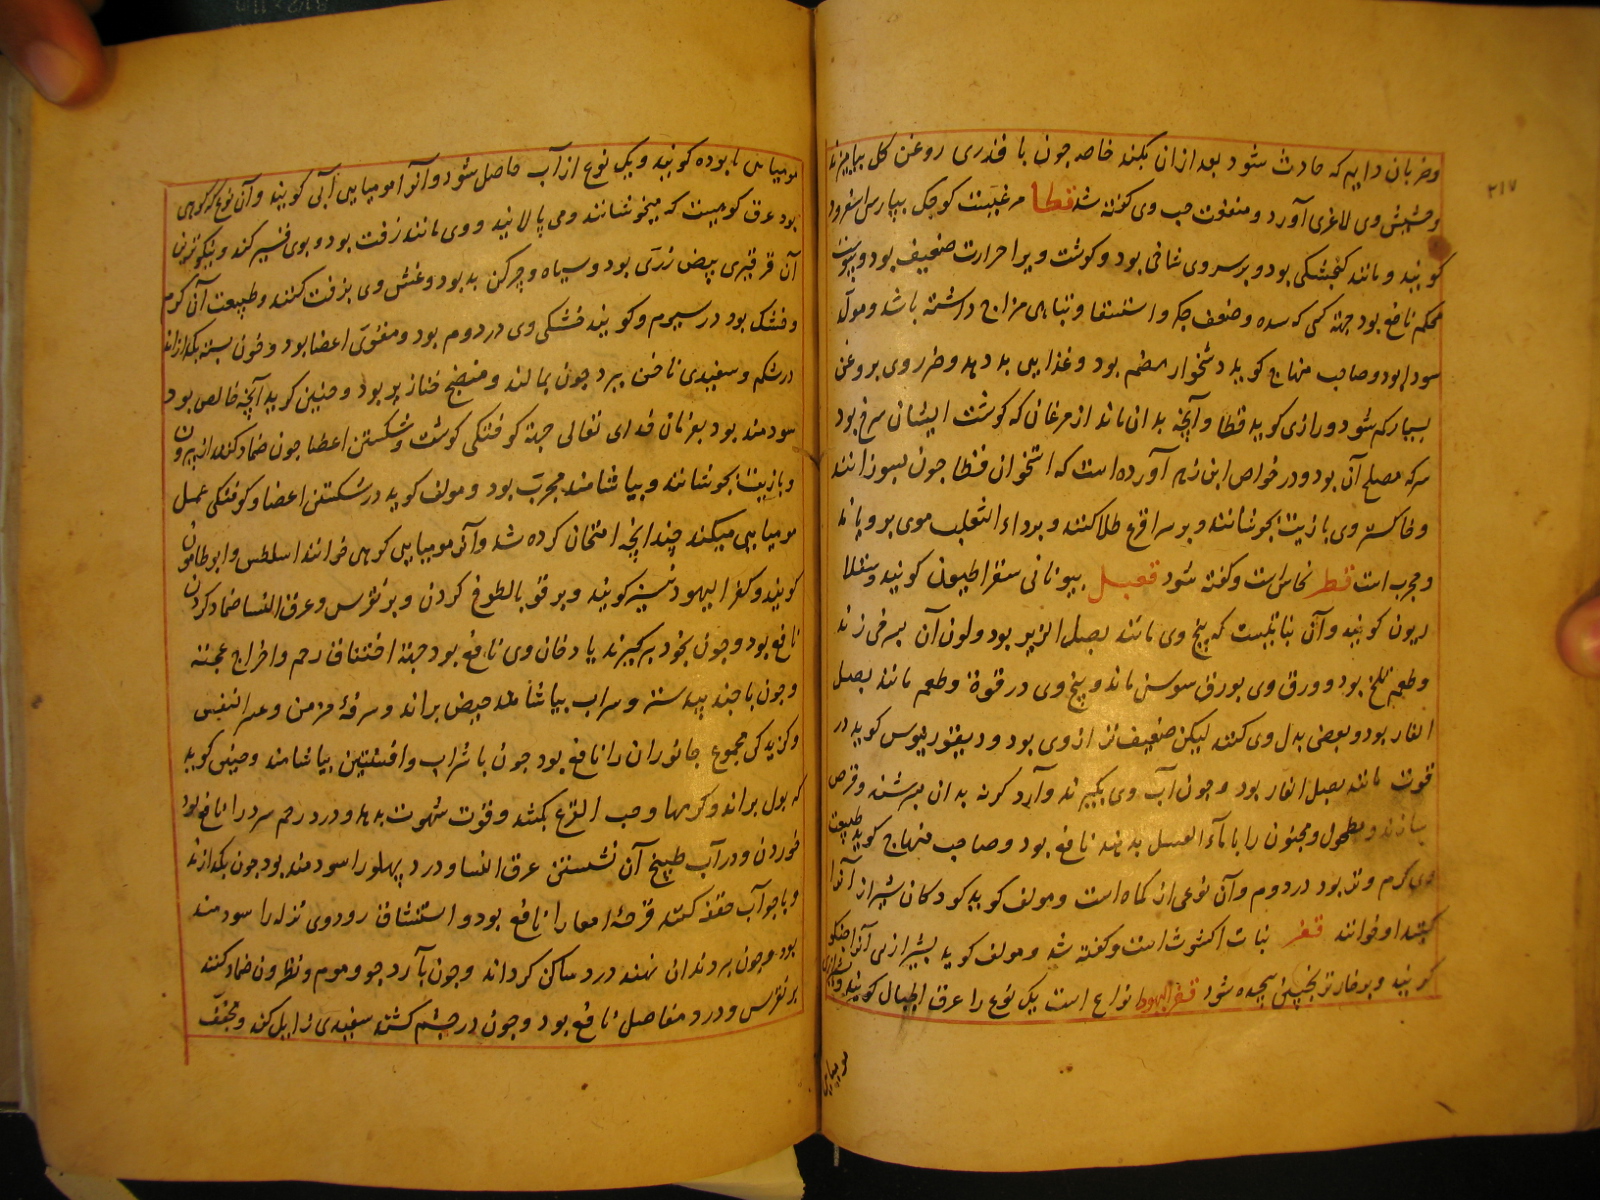 ۲۱۷
و ضربان دایم که حادث شود بعد ازان بکند خاصه چون با قدری روغن کل بیامیزند
وی لاغری آورد و منفعت حب وی کوفته شد قطا مرغیست کوچک بپارسی اسفرود
کویند و مانند کنجشکی بود و بر سر وی شاخی بود و کوشت ویرا حرارت ضعیف بود و یبوست
محکم نافع بود جهة کسی که سده و ضعف جکر و استسقا و تباهی مزاج داشته باشد و مولد
سودا بود و صاحب منهاج کوید دشخوار هضم بود و غذایی بد دهد و ضرر وی بروغن
بسیار کم شود و رازی کوید قطا و آنچه بدان ماند از مرغان که کوشت ایشان سرخ بود
سرکه مصلح آن بود و در خواص ابن زهر آورده است که استخوان قطا چون بسوزانند
و خاکستر وی با زیت بجوشانند و بر سر اقرع طلا کنند و بر داء الثعلب موی برویاند
و مجرب است قطر نحاس است و کفته شود قعبل بیونانی سقراطیون کویند و سقلا
ریون کویند و آن نباتیست که بیخ وی مانند بصل الزیر بود و لون آن بسرخی زند
و طعم تلخ بود و ورق وی بورق سوسن ماند و بیخ وی در قوة و طعم مانند بصل
الفار بود و بعضی بدل وی کنند لیکن ضعیف تر از وی بود و دیسقوریدوس کوید در
قوت مانند بصل الفار بود و چون آب وی بکیرند و آرد کرسنه بدان بسرشند و قرص
سازند و مطحول و مجنون را با ماء العسل بدهند نافع بود و صاحب منهاج کوید طبیعت
وی کرم و تر بود در دوم و آن نوعی از کماه است و مولف کوید کودکان شیراز آنرا
خوانند قفر نبات اکشوث است و کفته شد و مولف کوید بشیرازی آنرا
کویند و بر خار ترنجبین پیچیده شود قفر الیهود انواع است یک نوع را عرق الجبال کویند و
مومیایی
مومیایی نابوده کویند و یک نوع از آب حاصل شود و آنرا مومیایی آبی کویند و آن نوع که کوهی
بود عرق کوهیست که میجوشانند و می پالایند و وی مانند زفت بود و بوی قیر کند و نیکوترین
آن قرقیری بود و سیاه و چرکن بد بود و غش وی بزفت کنند و طبیعت آن کرم
و خشک بود در سیوم و کویند خشکی وی در دوم بود و مقوی اعضا بود و خون بسته بکدازاند
در شکم و سفیدی ناخن ببرد چون بمالند و منضج خنازیر بود و حنین کوید آنچه خالص بود
سودمند بود بفرمان خدای تعالی جهة کوفتکی کوشت و شکستن اعضا چون ضماد کنند از بیرون
و بازیت بجوشانند و بیاشامند مجرب بود و مولف کوید در شکستن اعضا و کوفتکی عمل
مومیایی میکند چندانچه امتحان کرده شد و آنرا مومیایی کوهی خوانند اسلطس و ابوطامون
کویند و کفر الیهود نیز کویند و بر قوبا لطوخ کردن و بر نقرس و عرق النسا ضماد کردن
نافع بود و چون بخود برکیرند یا دخان وی نافع بود جهة اختناق رحم و اخراج
و چون با جندبیدستر و سراب بیاشامند حیض براند و سرفهٔ مزمن و عسر النفس
و کزیدکی مجموع جانوران را نافع بود چون با شراب و افسنتین بیاشامند و حنین کوید
که بول براند و کرمها و حب القرع بکشد و قوت شهوت بدهد و درد رحم سرد را نافع بود
خوردن و در آب طبیخ آن نشستن عرق النسا و درد پهلو را سودمند بود چون بکدازند
و با جو آب حقنه کنند قرحهٔ امعا را نافع بود و استنشاق دود وی نزله را سودمند
بود و چون بر دندان نهند درد ساکن کرداند و چون با آرد جو و موم و نطرون ضماد کنند
بر نقرس و درد مفاصل نافع بود و چون در چشم کشند سفیدی زایل کند و مجفف